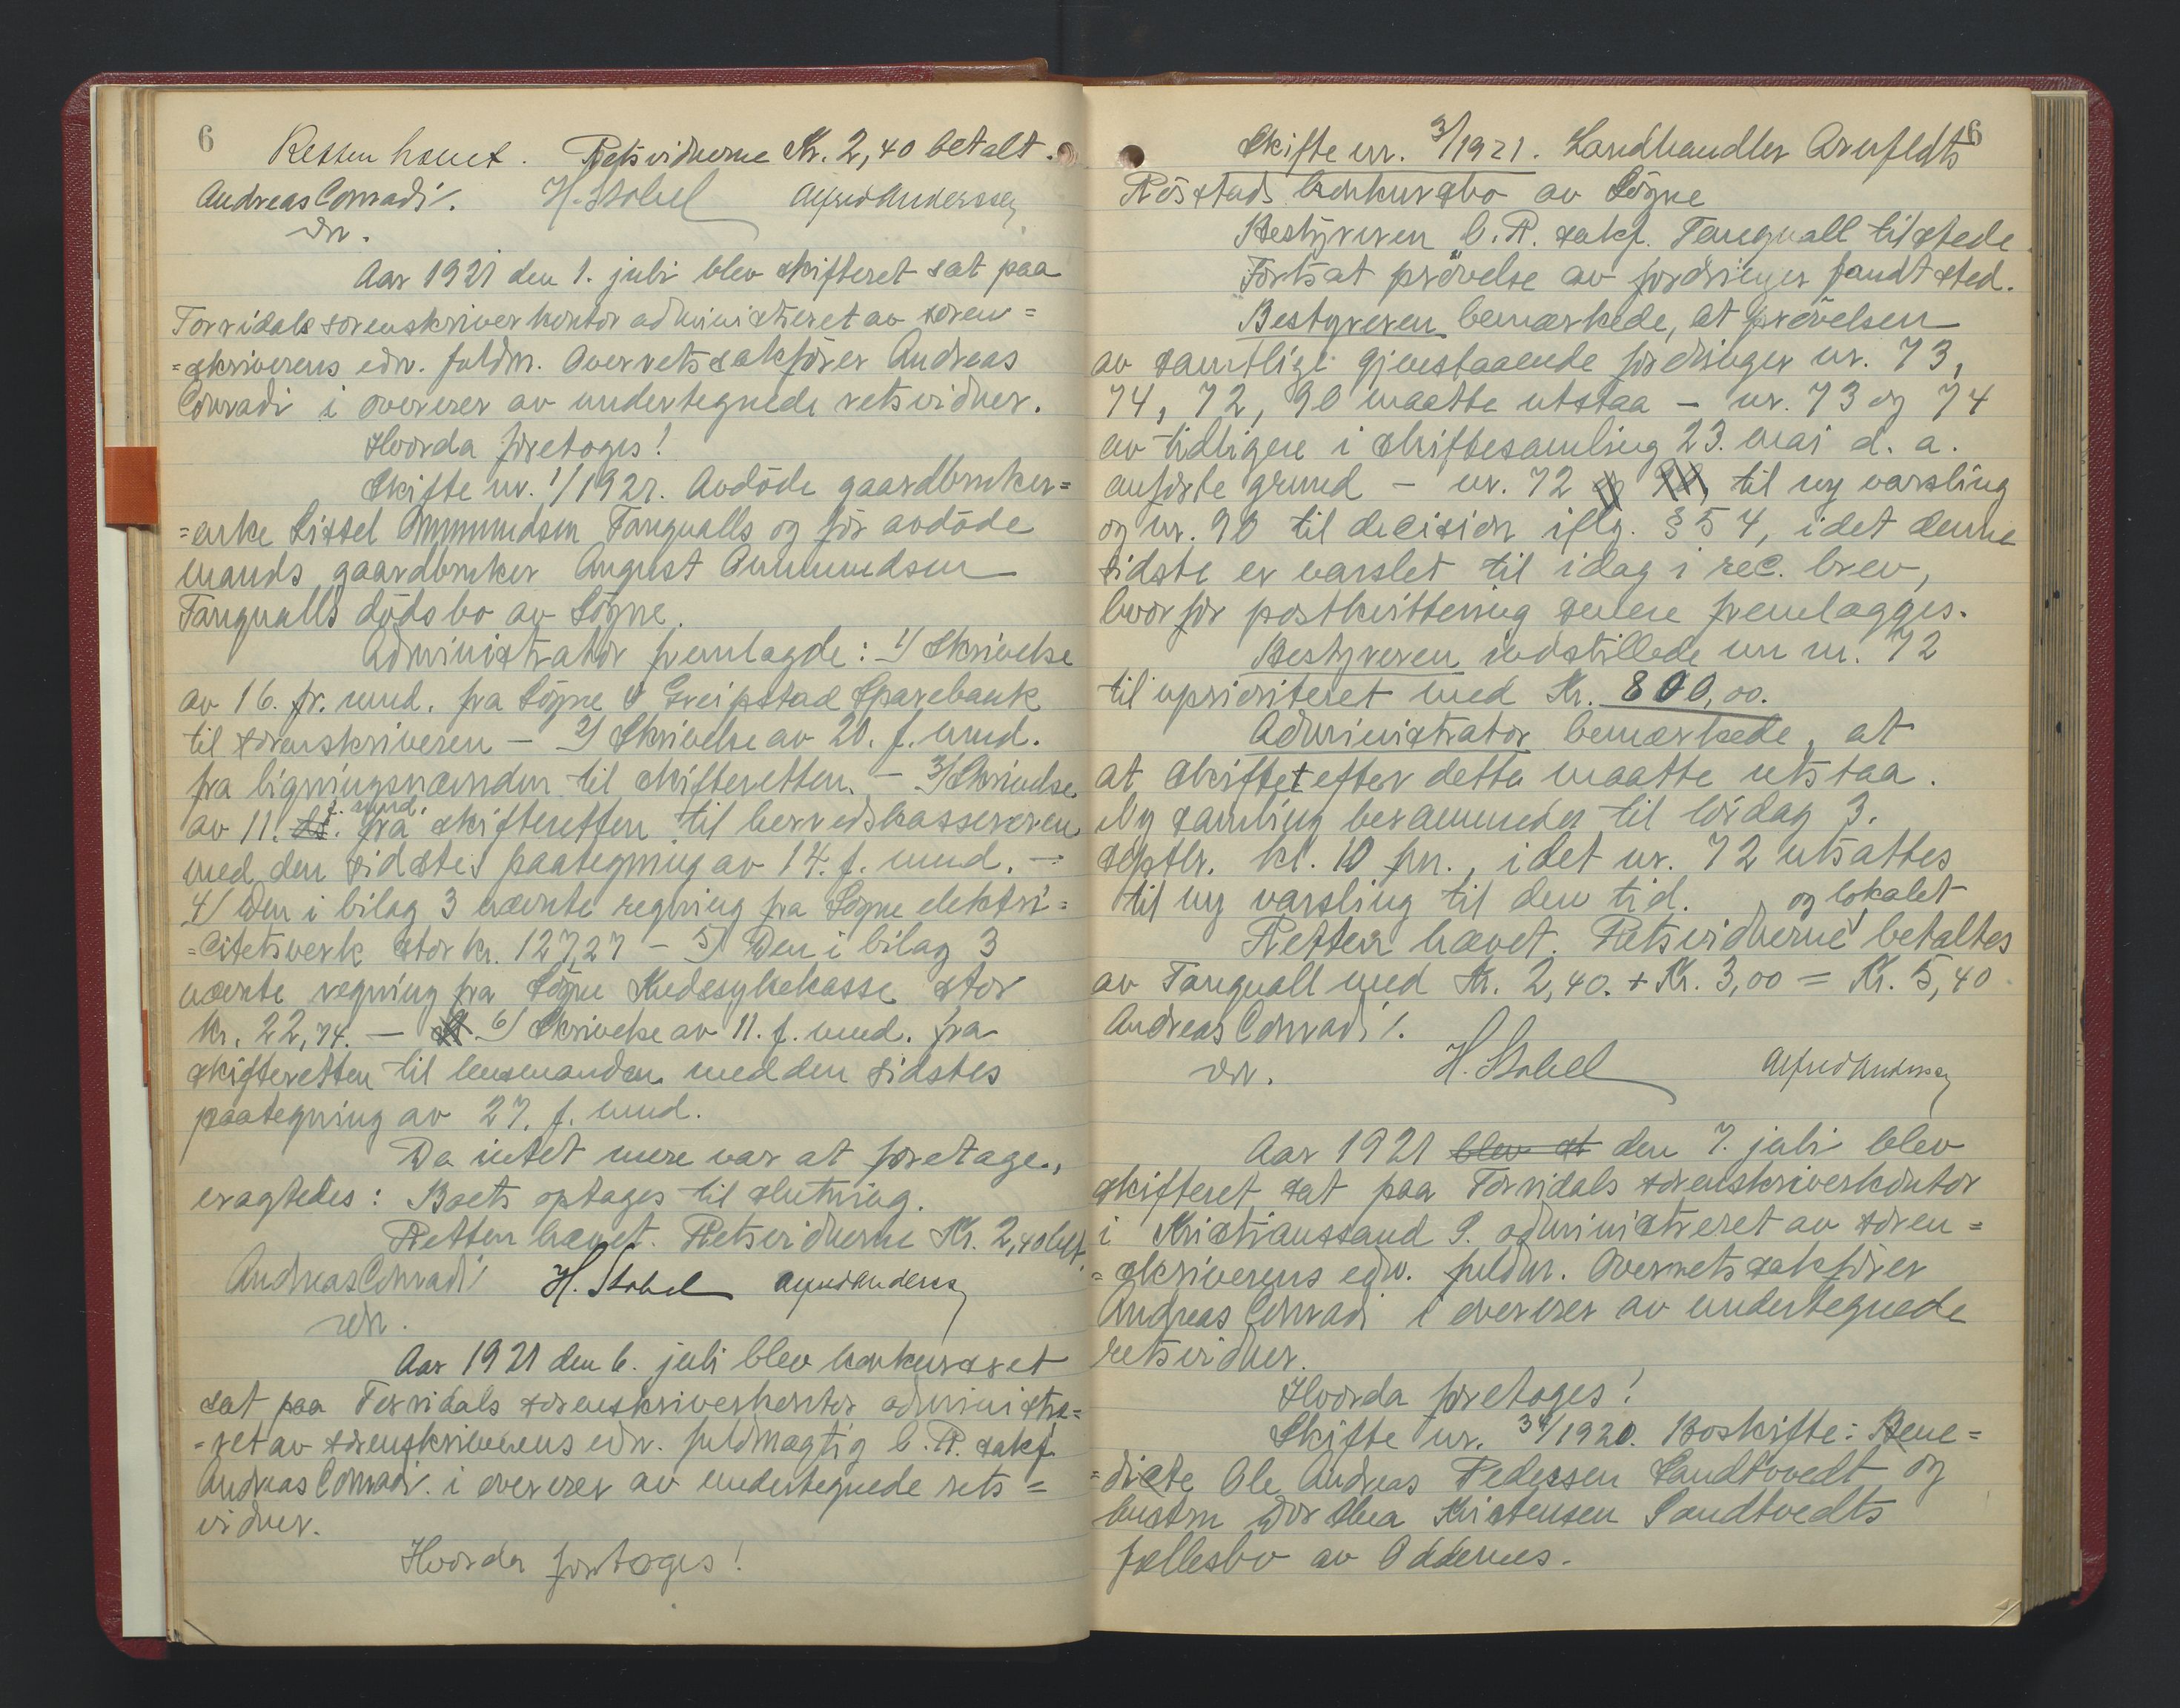 6
Retten hævet. Retsvidnerne Kr. 2,40 betalt.
Andreas Conradi. H. Stabel Alfred Andersen
edv.
Aar 1921 den 1. juli blev skifteret sat paa
Torridals sorenskriverkontor administreret av soren=
=skriverens edv. fuldm. Overretssakfører Andreas
Conradi i overvær av undertegnede retsvidner.
Hvorda foretoges!
Skifte nr. 1/1921. Avdöde gaardbruker=
=enke Lissel Ommundsen Tangvalls og för avdöde
mands gaardbruker August Ommundsen
Tangvalls dödsbo av Sögne.
Administrator fremlagde: 1/ Skrivelse
av 16. f. mnd. fra Sögne & Greipstad Sparebank
til sorenskriveren – 2/ Skrivelse av 20. f. mnd.
fra ligningsnævnden til skifteretten. – 3/ Skrivelse
av 11. ds. f. mnd. fra skifteretten til herredskassereren
med den sidstes paategning av 14. f. mnd. –
4/ Den i bilag 3 nævnte regning fra Sögne elektri=
=citetsverk stor kr. 127,27 – 5/ Den i bilag 3
nævnte regning fra Sögne Kredssykekasse stor
kr. 22,74. – 6/ Skrivelse av 11. f. mnd. fra
skifteretten til lensmanden med den sidstes
paategning av 27. f. mnd.
Da intet mere var at foretage,
eragtedes: Boets optages til slutning.
Retten hævet. Retsvidnerne Kr. 2,40 bet.
Andreas Conradi H. Stabel Alfred Andersen
edv.
Aar 1921 den 6. juli blev konkursret
sat paa Torridals sorenskriverkontor administre=
=ret av sorenskriverens edv. fuldmægtig O. R. sakf.
Andreas Conradi i overvær av undertegnede rets=
vidner.
Hvorda foretoges!
6
Skifte nr. 3/1921. Landhandler Arnfeldts
Rösstads konkursbo av Sögne
Bestyreren O. R. sakf. Tangvall tilstede.
Fortsat prövelse av fordringer fandt sted.
Bestyreren bemærkede, at prövelsen
av samtlige gjenstaaende fordringer nr. 73,
74, 72, 90 maatte utstaa – nr. 73 og 74
av tidligere i skiftesamling 23. mai d. a.
anförte grund – nr. 72 og 90, til ny varsling
og nr. 90 til decision iflg. § 54, idet denne
sidste er varslet til idag i rec. brev,
hvorfor postkvittering senere fremlægges.
Bestyreren indstillede nu nr. 72
til uprioriteret med Kr. 800,00.
Administrator bemærkede, at
at skiftet efter dette maatte utstaa.
Ny samling berammedes til lördag 3.
septbr. kl. 10 fm., idet nr. 72 utsattes
til ny varsling til den tid.
Retten hævet. Retsvidnerne og lokalet betaltes
av Tangvall med Kr. 2,40. + Kr. 3,00 = Kr. 5,40.
Andreas Conradi.
edv. H. Stabel Alfred Andersen
Aar 1921 blev st den 7. juli blev
skifteret sat paa Torridals sorenskriverkontor
i Kristianssand S. administreret av soren=
=skriverens edv. fuldm. Overretssakförer
Andreas Conradi i overvær av undertegnede
retsvidner.
Hvorda foretoges!
Skifte nr. 34/1920. Boskifte: Bene=
=dicte Ole Andreas Pedersen Sandtvedt og
hustru Dorthea Kristensen Sandtvedts
fællesbo av Oddernes.